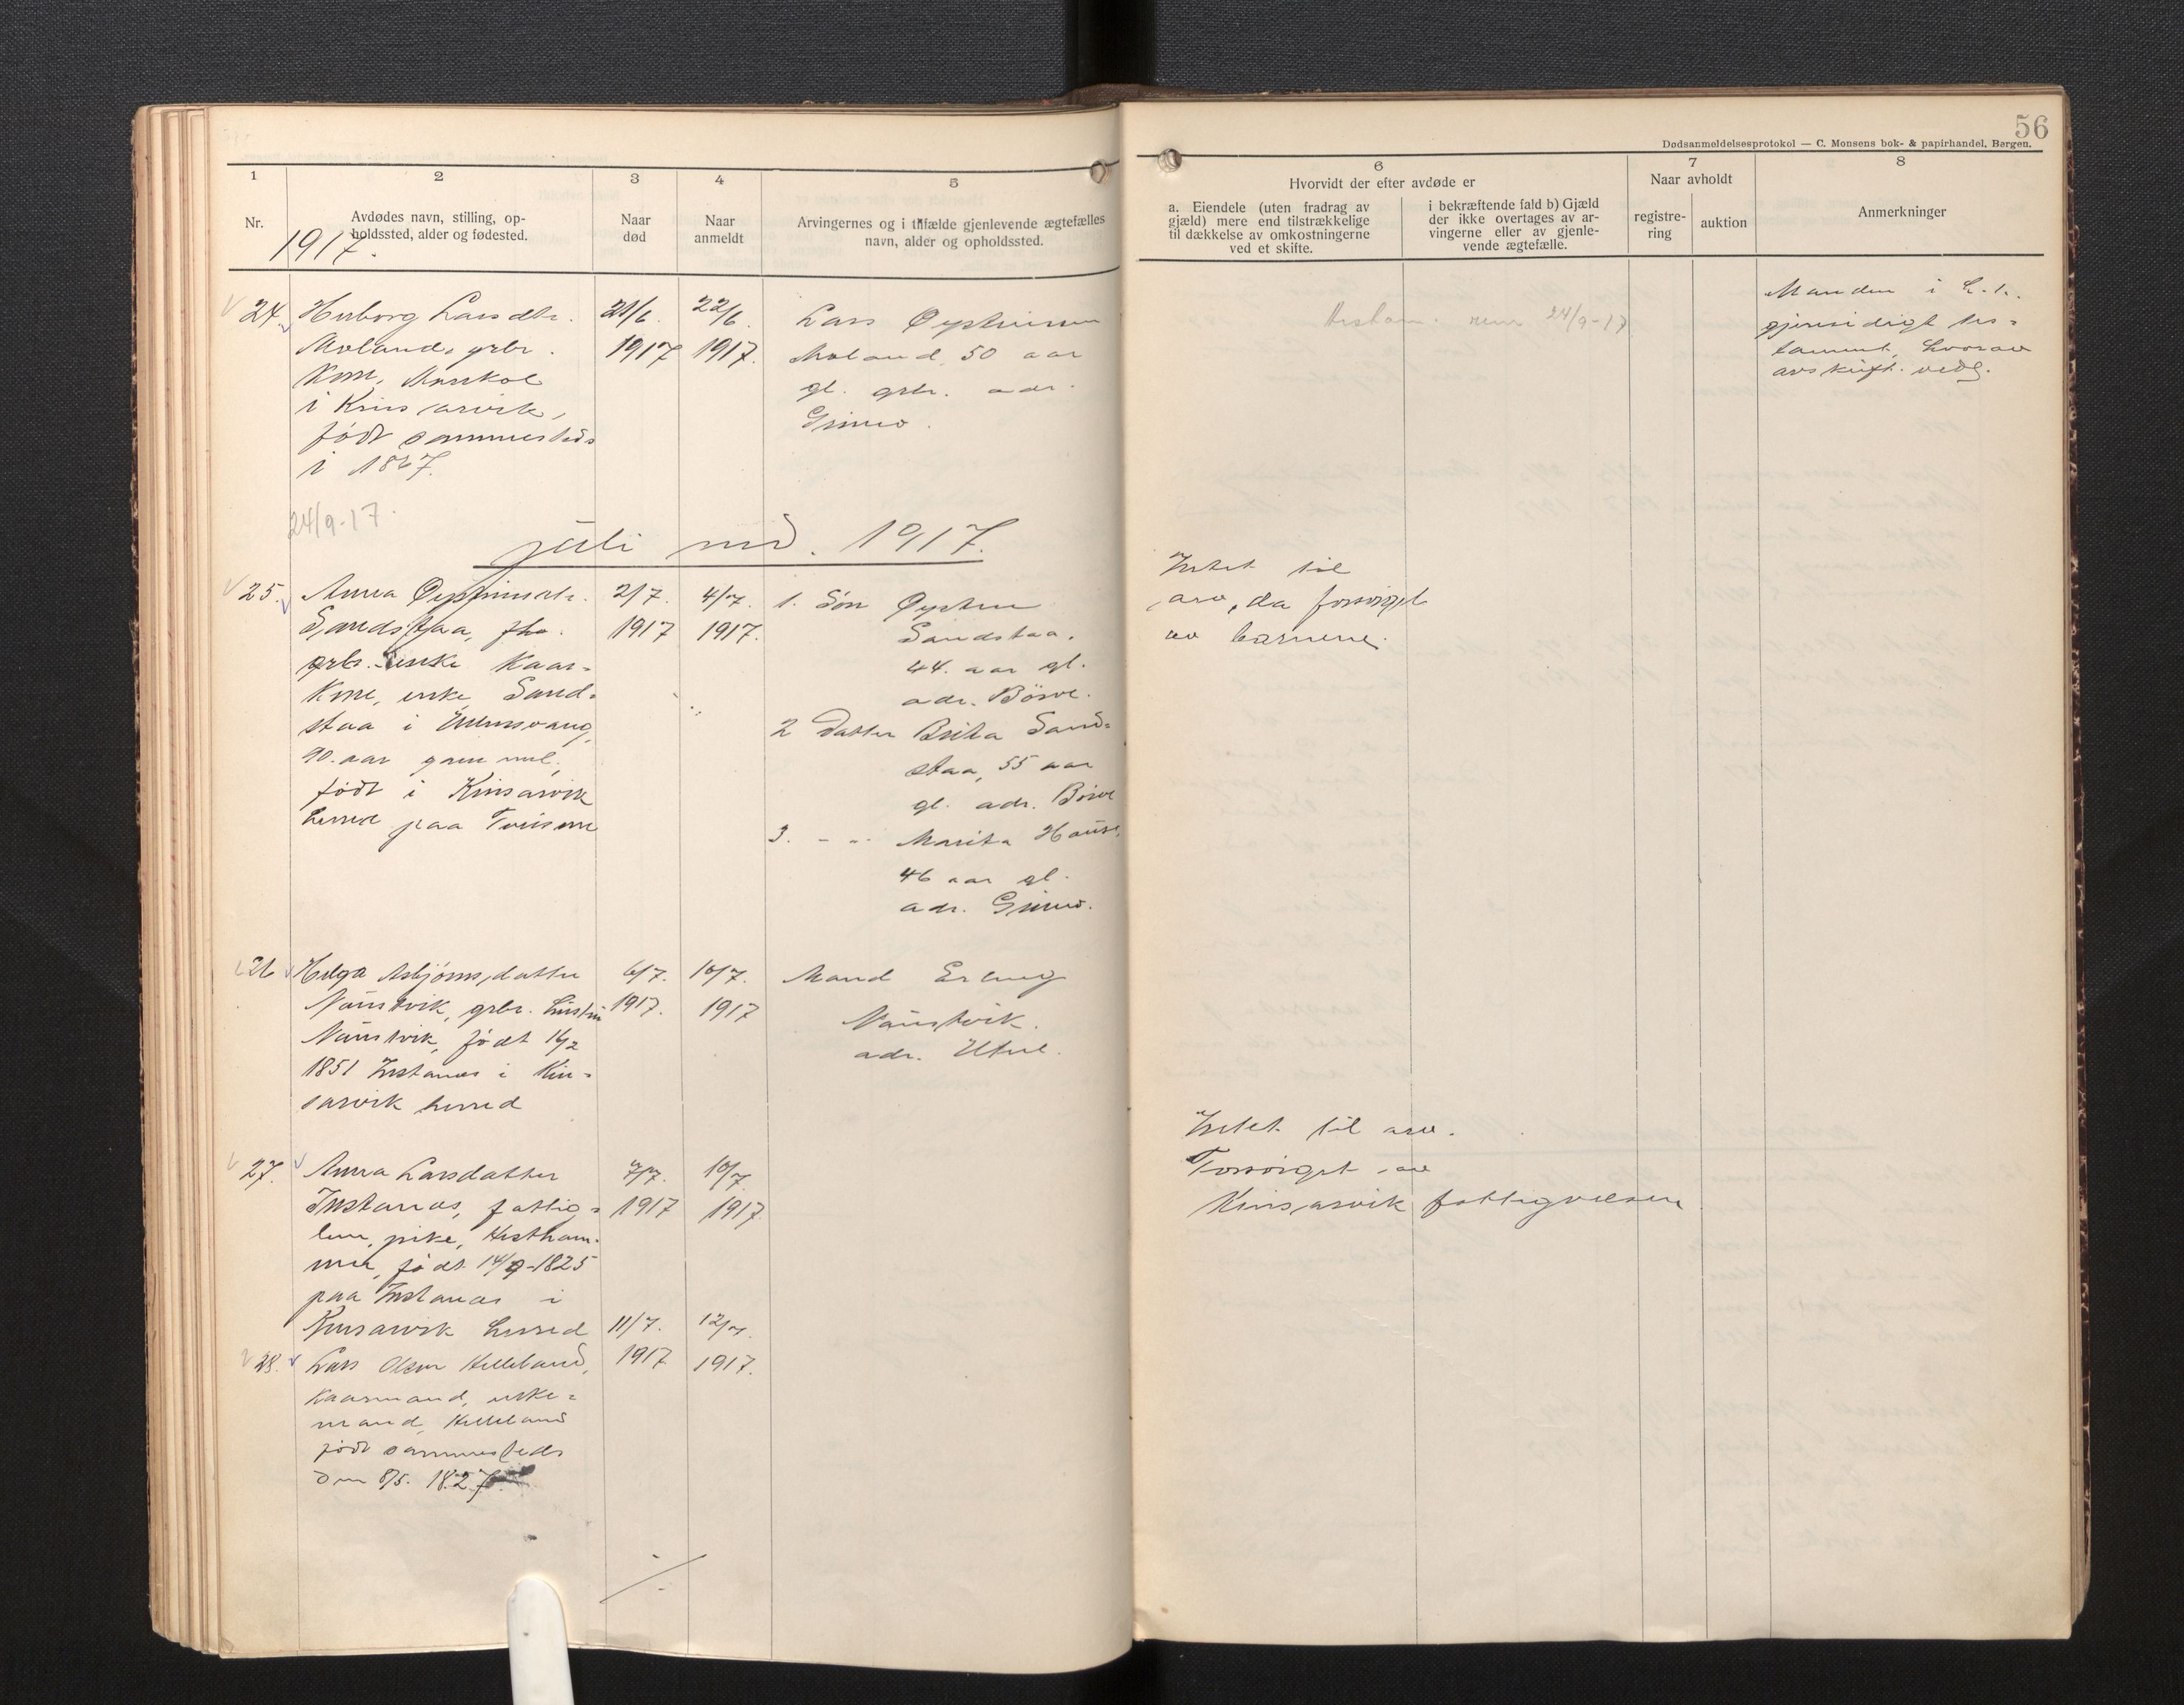 56
Dødsanmeldelsesprotokol — C. Monsens bok- & papirhandel, Bergen.
1
2
3
4
5
6
7
8
Nr.
Avdødes navn, stilling, op-
holdssted, alder og fødested.
Naar
død
Naar
anmeldt
Arvingernes og i tilfælde gjenlevende ægtefælles
navn, alder og opholdssted.
Hvorvidt der efter avdøde er
a. Eiendele (uten fradrag av
gjæld) mere end tilstrækkelige
til dækkelse av omkostningerne
ved et skifte.
i bekræftende fald b) Gjæld
der ikke overtages av ar-
vingerne eller av gjenle-
vende ægtefælle.
Naar avholdt
registre-
ring
auktion
Anmerkninger
1917.
24. Herborg Larsdtr.
Moland, grbr.
kone, 
i Kinsarvik,
født sammesteds
i 1867.
21/6.
1917
22/6.
1917.
Lars Øysteinsen
Moland, 50 aar
gl. grbr. adr.
Grimo.
24/9-17
Manden i
gjensidigt tes=
tament, hvorav
avskrift vedl.
24/9-17.
juli md. 1917.
25. Anna Øysteinsdtr.
Sandstaa, fho.
grbr. enke kaar=
kone, enke, Sand=
staa i Ullensvang,
90. aar gammel,
født i Kinsarvik
herred paa
2/7.
1917
4/7.
1917.
1. Søn Øystein
Sandstaa.
44. aar gl.
adr. Börve.
2 Datter Brita Sand=
staa, 55 aar
gl. adr. Börve
3. - " - Marita Hause,
46 aar gl.
adr. Grimo.
Intet til
arv, da forsörget
av barnene.
26 Helga Asbjörnsdatter
Naustvik, grbr. hustru
Naustvik, födt 16/2
1851 Instanes i Kin=
sarvik herred
6/7.
1917.
10/7.
1917
Mand Erling
Naustvik.
adr. Utne.
27. Anna Larsdatter
Instanes, fattig=
lem, pike, Hestham=
mer, födt 14/9-1825
paa Instanes i
Kinsarvik herred
7/7.
1917
10/7.
1917.
Intet til arv.
Forsörget av
Kinsarvik fattigvæsen
28. Lars Olsen Helleland,
Kaarmand, enke=
mand, Helleland
födt sammesteds
den 8/5. 1827.
11/7.
1917
12/7.
1917.